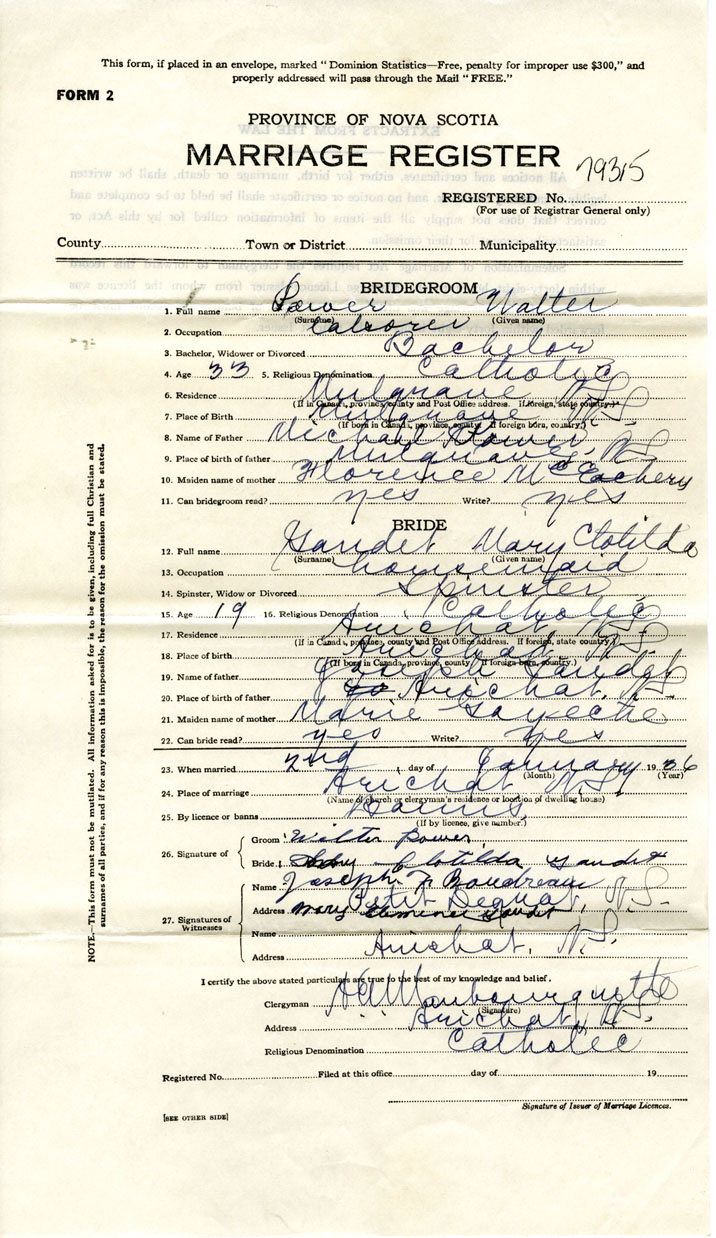 This form, if placed in an envelope, marked “Dominion Statistics—Free, penalty for improper use $300,” and
properly addressed will pass through the Mail “FREE.”
FORM 2
PROVINCE OF NOVA SCOTIA
MARRIAGE REGISTER
79315
REGISTERED No.
(For use of Registrar General only)
County Town or District Municipality
BRIDEGROOM
1. Full name Power Walter
(Surname) (Given name)
2. Occupation Laborer
3. Bachelor, Widower or Divorced Bachelor
4. Age 33 5. Religious Denomination Catholic
6. Residence Mulgrave N.S.
(If in Canada, province, county and Post Office address. If foreign, state country.)
7. Place of Birth Mulgrave N.S.
(If born in Canada, province, county. If foreign born, country.)
8. Name of Father Michael Power
9. Place of birth of father Mulgrave, N.S.
10. Maiden name of mother Florence McEachery
11. Can bridegroom read? yes Write? yes
BRIDE
12. Full name Gaudet Mary Clotilda
(Surname) (Given name)
13. Occupation housemaid
14. Spinster, Widow or Divorced Spinster
15. Age 19 16. Religious Denomination Catholic
17. Residence Arichat N.S.
(If in Canada, province, county and Post Office address. If foreign, state country.)
18. Place of birth Arichat N.S.
(If born in Canada, province, county. If foreign born, country.)
19. Name of father Joseph Gaudet
20. Place of birth of father Arichat, N.S.
21. Maiden name of mother Marie
22. Can bride read? yes Write? yes
23. When married 2nd day of January 1936
(Month) (Year)
24. Place of marriage Arichat N.S.
(Name of church or clergyman's residence or location of dwelling house)
25. By licence or banns Banns
(If by licence, give number.)
26. Signature of Groom Walter Power
Bride Clotilda Gaudet
27. Signatures of Witnesses
Name Joseph F Boudreau
Address Petit Degrat, N.S.
Name Mary Gaudet
Address Arichat, N.S.
I certify the above stated particulars are true to the best of my knowledge and belief.
Clergyman
(Signature)
Address Arichat, N.S.
Religious Denomination Catholic
Registered No. Filed at this office day of 19
Signature of Issuer of Marriage Licences.
[SEE OTHER SIDE]
NOTE.—This form must not be mutilated. All information asked for is to be given, including full Christian and
surnames of all parties, and if for any reason this is impossible, the reason for the omission must be stated.